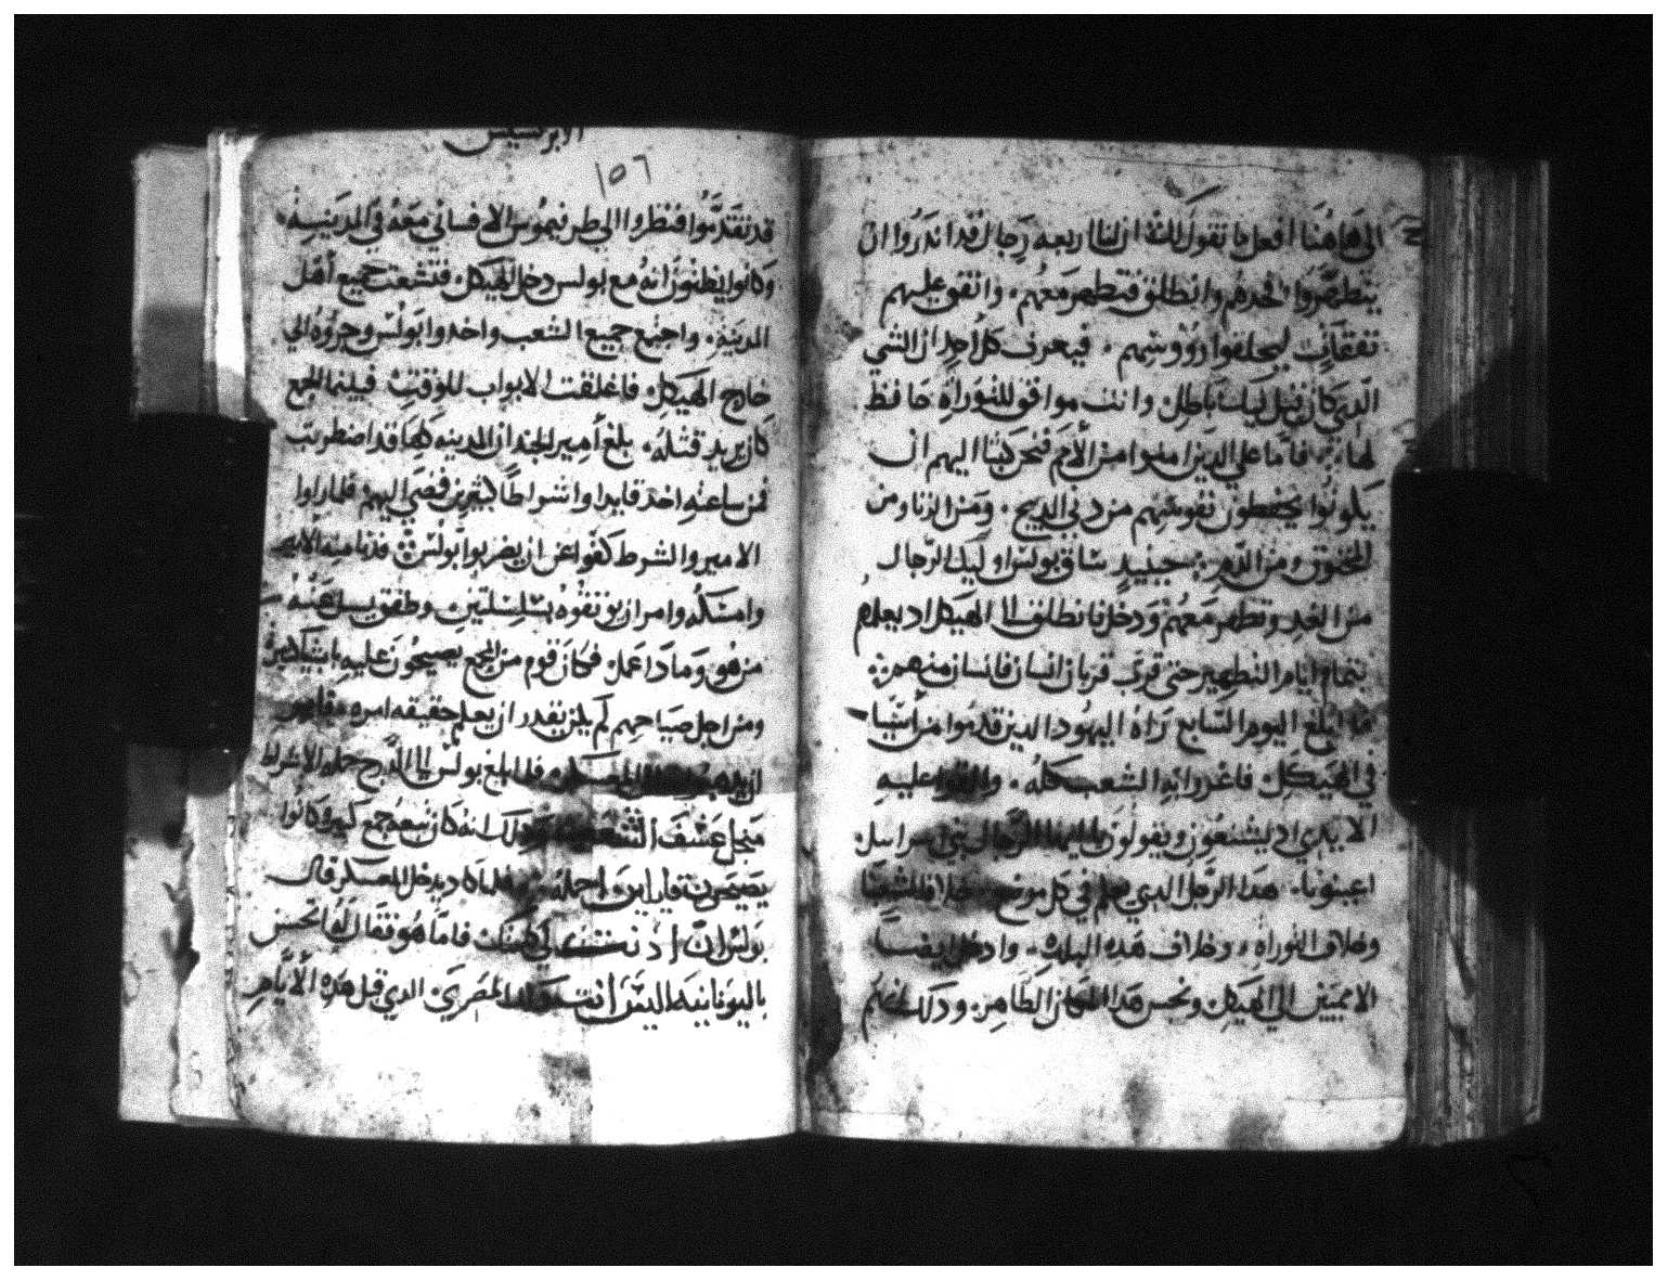 الى هاهنا افعل ما نقول لك ان لنا اربعه رجال قد اندروا ان
يتطهروا خدهم وانطلق فتطهر معهم . وانفق عليهم
نفقات ليحلقوا رووسهم . فيعرف كل احد ان الشي
الدي كان قيل فيك باطل وانت موافق للتوراه حافظ
لها . فاما على الدين امنوا من الامم فنحن كتبنا اليهم ان
يكونوا يحفظون نفوسهم من دبي الدبيح . ومن الزنا ومن
المخنوق ومن الدم . حينيد ساق بولس اوليك الرجال
من الغد وتطهر معهم ودخل فانطلق الى الهيكل اد يعلم
بتمام ايام التطهير حتى قرب قربان انسان فانسان منهم
فلما بلغ اليوم السابع راه اليهود الدين قدموا من اسيا
في الهيكل . فاغدروا به الشعب كله . والقوا عليه
الايدي اد يشنعون ويقولون يا ايها الرجال بني اسراييل
اعينونا . هدا الرجل الدي يعلم في كل موضع خلافا لشعبنا
وخلاف التوراه . وخلاف هده البلده . وادخل ايضا
الامميين الى الهيكل ونجس هدا المكان الطاهر . ودلك انهم
الابركسيس
١٥٦
قد تقدموا فنظروا الى طرفيموس الافساني معه في المدينه
وكانوا يظنون انه مع بولس دخل الهيكل . فتشعت جميع اهل
المدينه . واجتمع جميع الشعب واخدوا بولس وجروه الى
خارج الهيكل . فاغلقت الابواب للوقت فبينما الجمع
كان يريد قتله . بلغ امير الجند ان المدينه كلها قد اضطربت
فمن ساعته اخد قايدا واشراطا كثيرين فمضى اليهم فلما راوا
الامير والشرط كفوا عن ان يضربوا بولس . فدنا منه الامير
وامسكه وامر ان يوتقوه بسلسلتين . وطفق يسل عنه
من هو وما دا عمل فكان قوم من الجمع يصيحون عليه باشيا كثيره
ومن اجل صياحهم لم يكن يقدر ان يعلم حقيقه امره . فامر
ان يدهبوا به الى المعسكر . فلما بلغ بولس الى الدرج حمله الاشراط
من اجل عشف الشعب ودلك انه كان يتبعه جمع كبير وكانوا
يصيحون قايلين احمله . فلما كاد يدخل المعسكر قال
بولس ان ادنت لي كلمتك فاما هو فقال له اتحسن
باليونانيه اليس انت دلك المصري . الدي قبل هده الايام